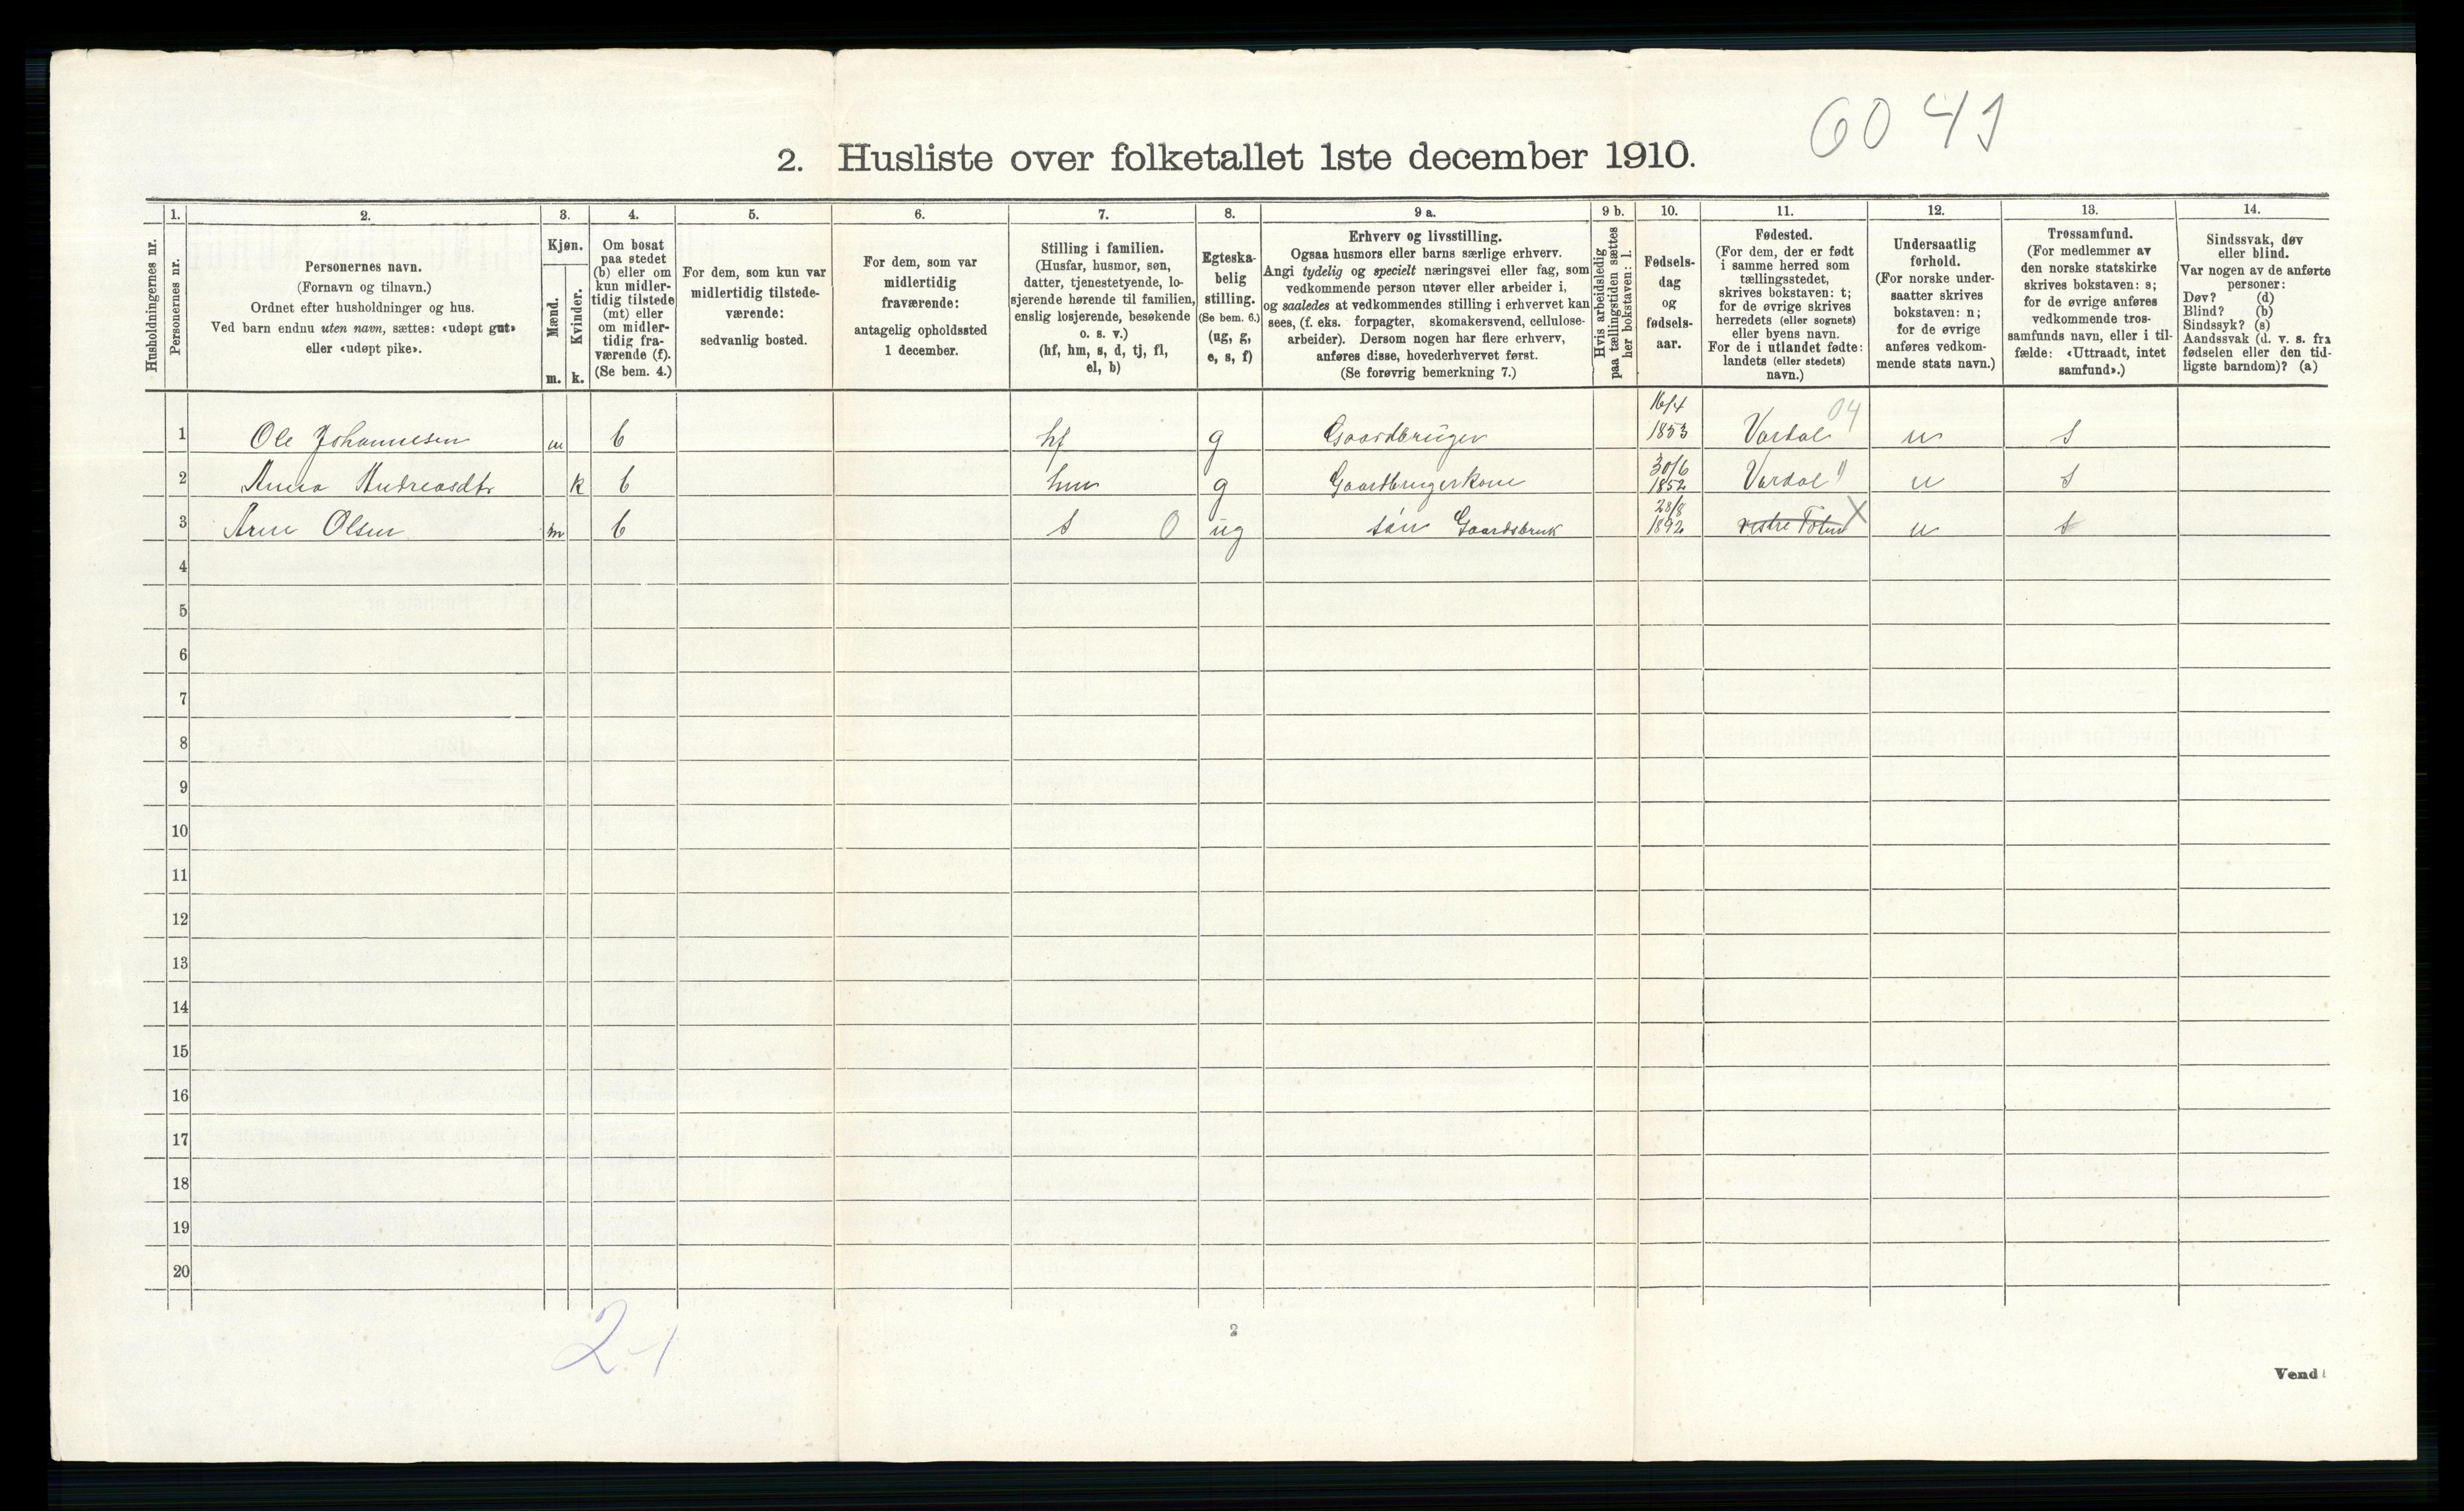 60 41
2. Husliste over folketallet 1ste december 1910.
Husholdningernes nr.
1.
Personernes nr.
2.
Personernes navn.
(Fornavn og tilnavn.)
Ordnet efter husholdninger og hus.
Ved barn endnu uten navn, sættes: «udøpt gut»
eller «udøpt pike».
3.
Kjøn.
Mænd.
Kvinder.
m. k.
4.
Om bosat
paa stedet
(b) eller om
kun midler-
tidig tilstede
(mt) eller
om midler-
tidig fra-
værende (f).
(Se bem. 4.)
5.
For dem, som kun var
midlertidig tilstede-
værende:
sedvanlig bosted.
6.
For dem, som var
midlertidig
fraværende:
antagelig opholdssted
1 december.
7.
Stilling i familien.
(Husfar, husmor, søn,
datter, tjenestetyende, lo-
sjerende hørende til familien,
enslig losjerende, besøkende
o. s. v.)
(hf, hm, s, d, tj, fl,
el, b)
8.
Egteska-
belig
stilling.
(Se bem. 6.)
(ug, g,
e, s, f)
9 a.
Erhverv og livsstilling.
Ogsaa husmors eller barns særlige erhverv.
Angi tydelig og specielt næringsvei eller fag, som
vedkommende person utøver eller arbeider i,
og saaledes at vedkommendes stilling i erhvervet kan
sees, (f. eks. forpagter, skomakersvend, cellulose-
arbeider). Dersom nogen har flere erhverv,
anføres disse, hovederhvervet først.
(Se forøvrig bemerkning 7.)
9 b.
Hvis arbeidsledig
paa tællingstiden sættes
her bokstaven: l.
10.
Fødsels-
dag
og
fødsels-
aar.
11.
Fødested.
(For dem, der er født
i samme herred som
tællingsstedet,
skrives bokstaven: t;
for de øvrige skrives
herredets (eller sognets)
eller byens navn.
For de i utlandet fødte:
landets (eller stedets)
navn.)
12.
Undersaatlig
forhold.
(For norske under-
saatter skrives
bokstaven: n;
for de øvrige
anføres vedkom-
mende stats navn.)
13.
Trossamfund.
(For medlemmer av
den norske statskirke
skrives bokstaven: s;
for de øvrige anføres
vedkommende tros-
samfunds navn, eller i til-
fælde: «Uttraadt, intet
samfund».)
14.
Sindssvak, døv
eller blind.
Var nogen av de anførte
personer:
Døv? (d)
Blind? (b)
Sindssyk? (s)
Aandssvak (d. v. s. fra
fødselen eller den tid-
ligste barndom)? (a)
1 Ole Johannesen m b hf g Gaardbruger 16/4 1853 Vardal 04 n s
2 Anna Andreasdtr k b hm g Gaardbrugerkone 30/6 1852 Vardal " n s
3 Arne Olsen m b s O ug søn Gaardsbruk 28/8 1892 vestre Toten X n s
4
5
6
7
8
9
10
11
12
13
14
15
16
17
18
19
20
2-1
2
Vend